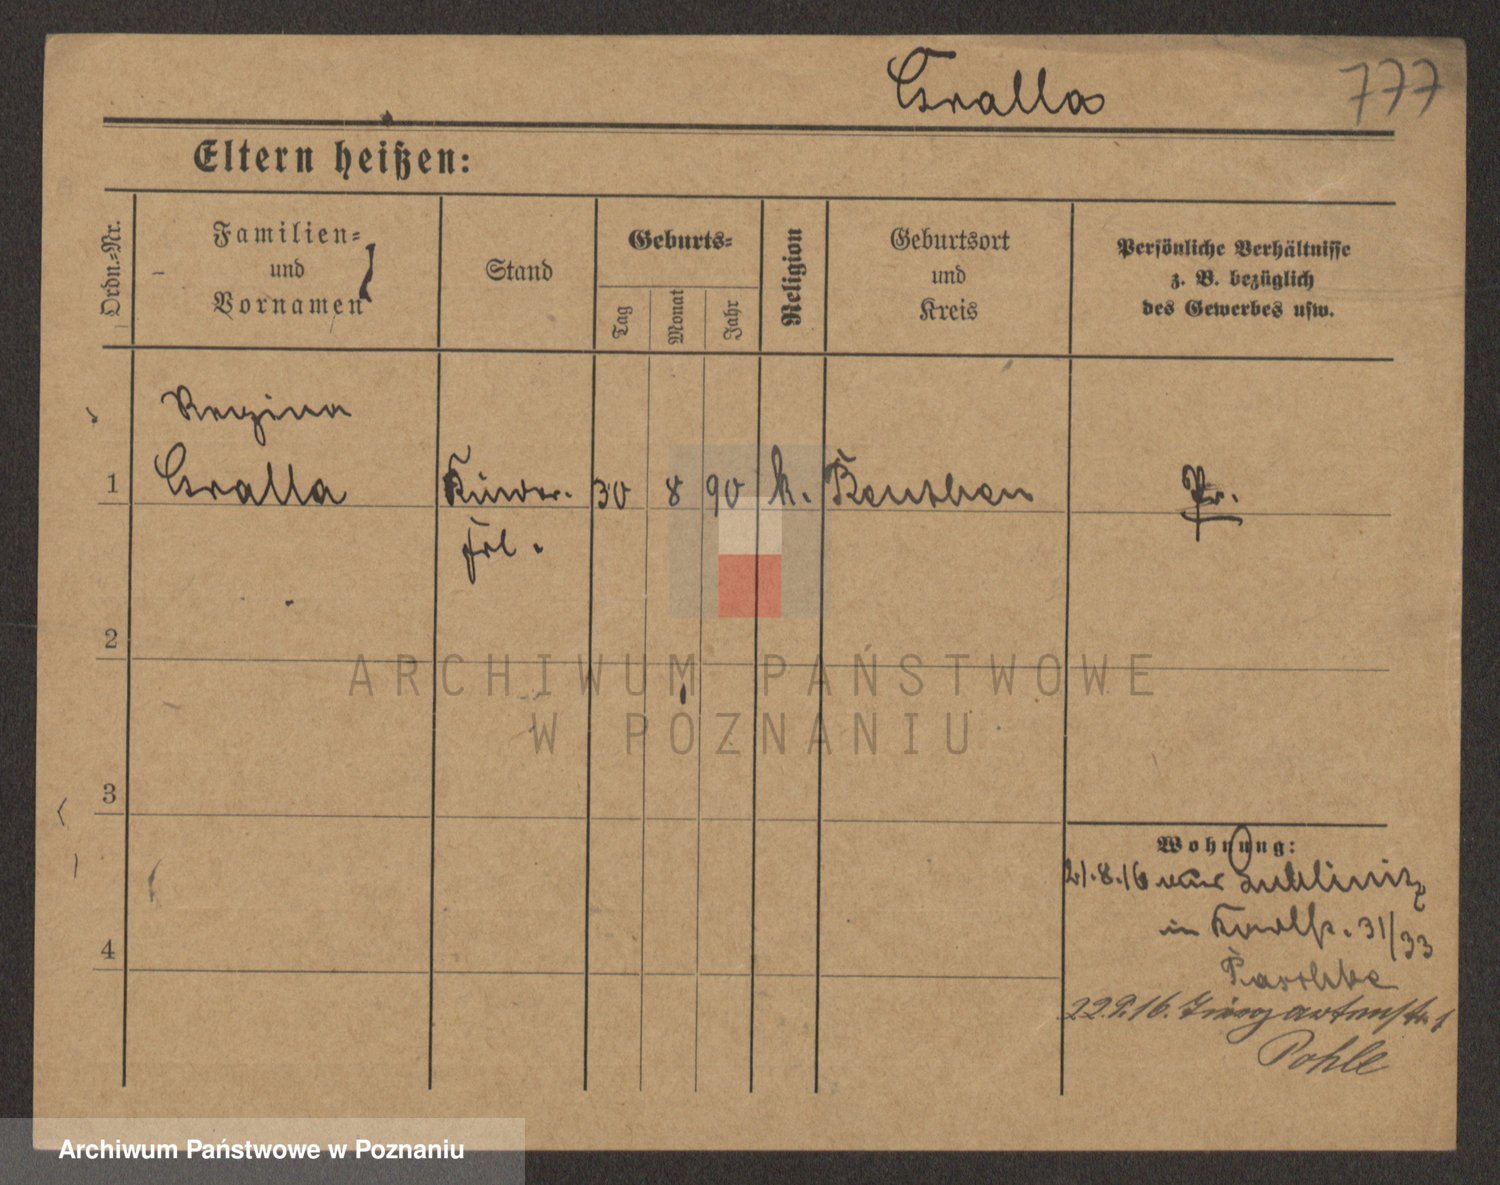 Gralla 777
Eltern heißen:
Ordn.-Nr.
Familien-
und
Vornamen
Stand
Geburts-
Tag
Monat
Jahr
Religion
Geburtsort
und
Kreis
Persönliche Verhältnisse
z. B. bezüglich
des Gewerbes usw.
Regina
1 Gralla Kinder- 30 8 90 k. Beuthen Pr.
Frl.
2
3
4
Wohnung:
21.8.16 Lublinitz
in 31/33
22.9.16. Tiergartenstr. 1
Pohle
ARCHIWUM PAŃSTWOWE
W POZNANIU
Archiwum Państwowe w Poznaniu